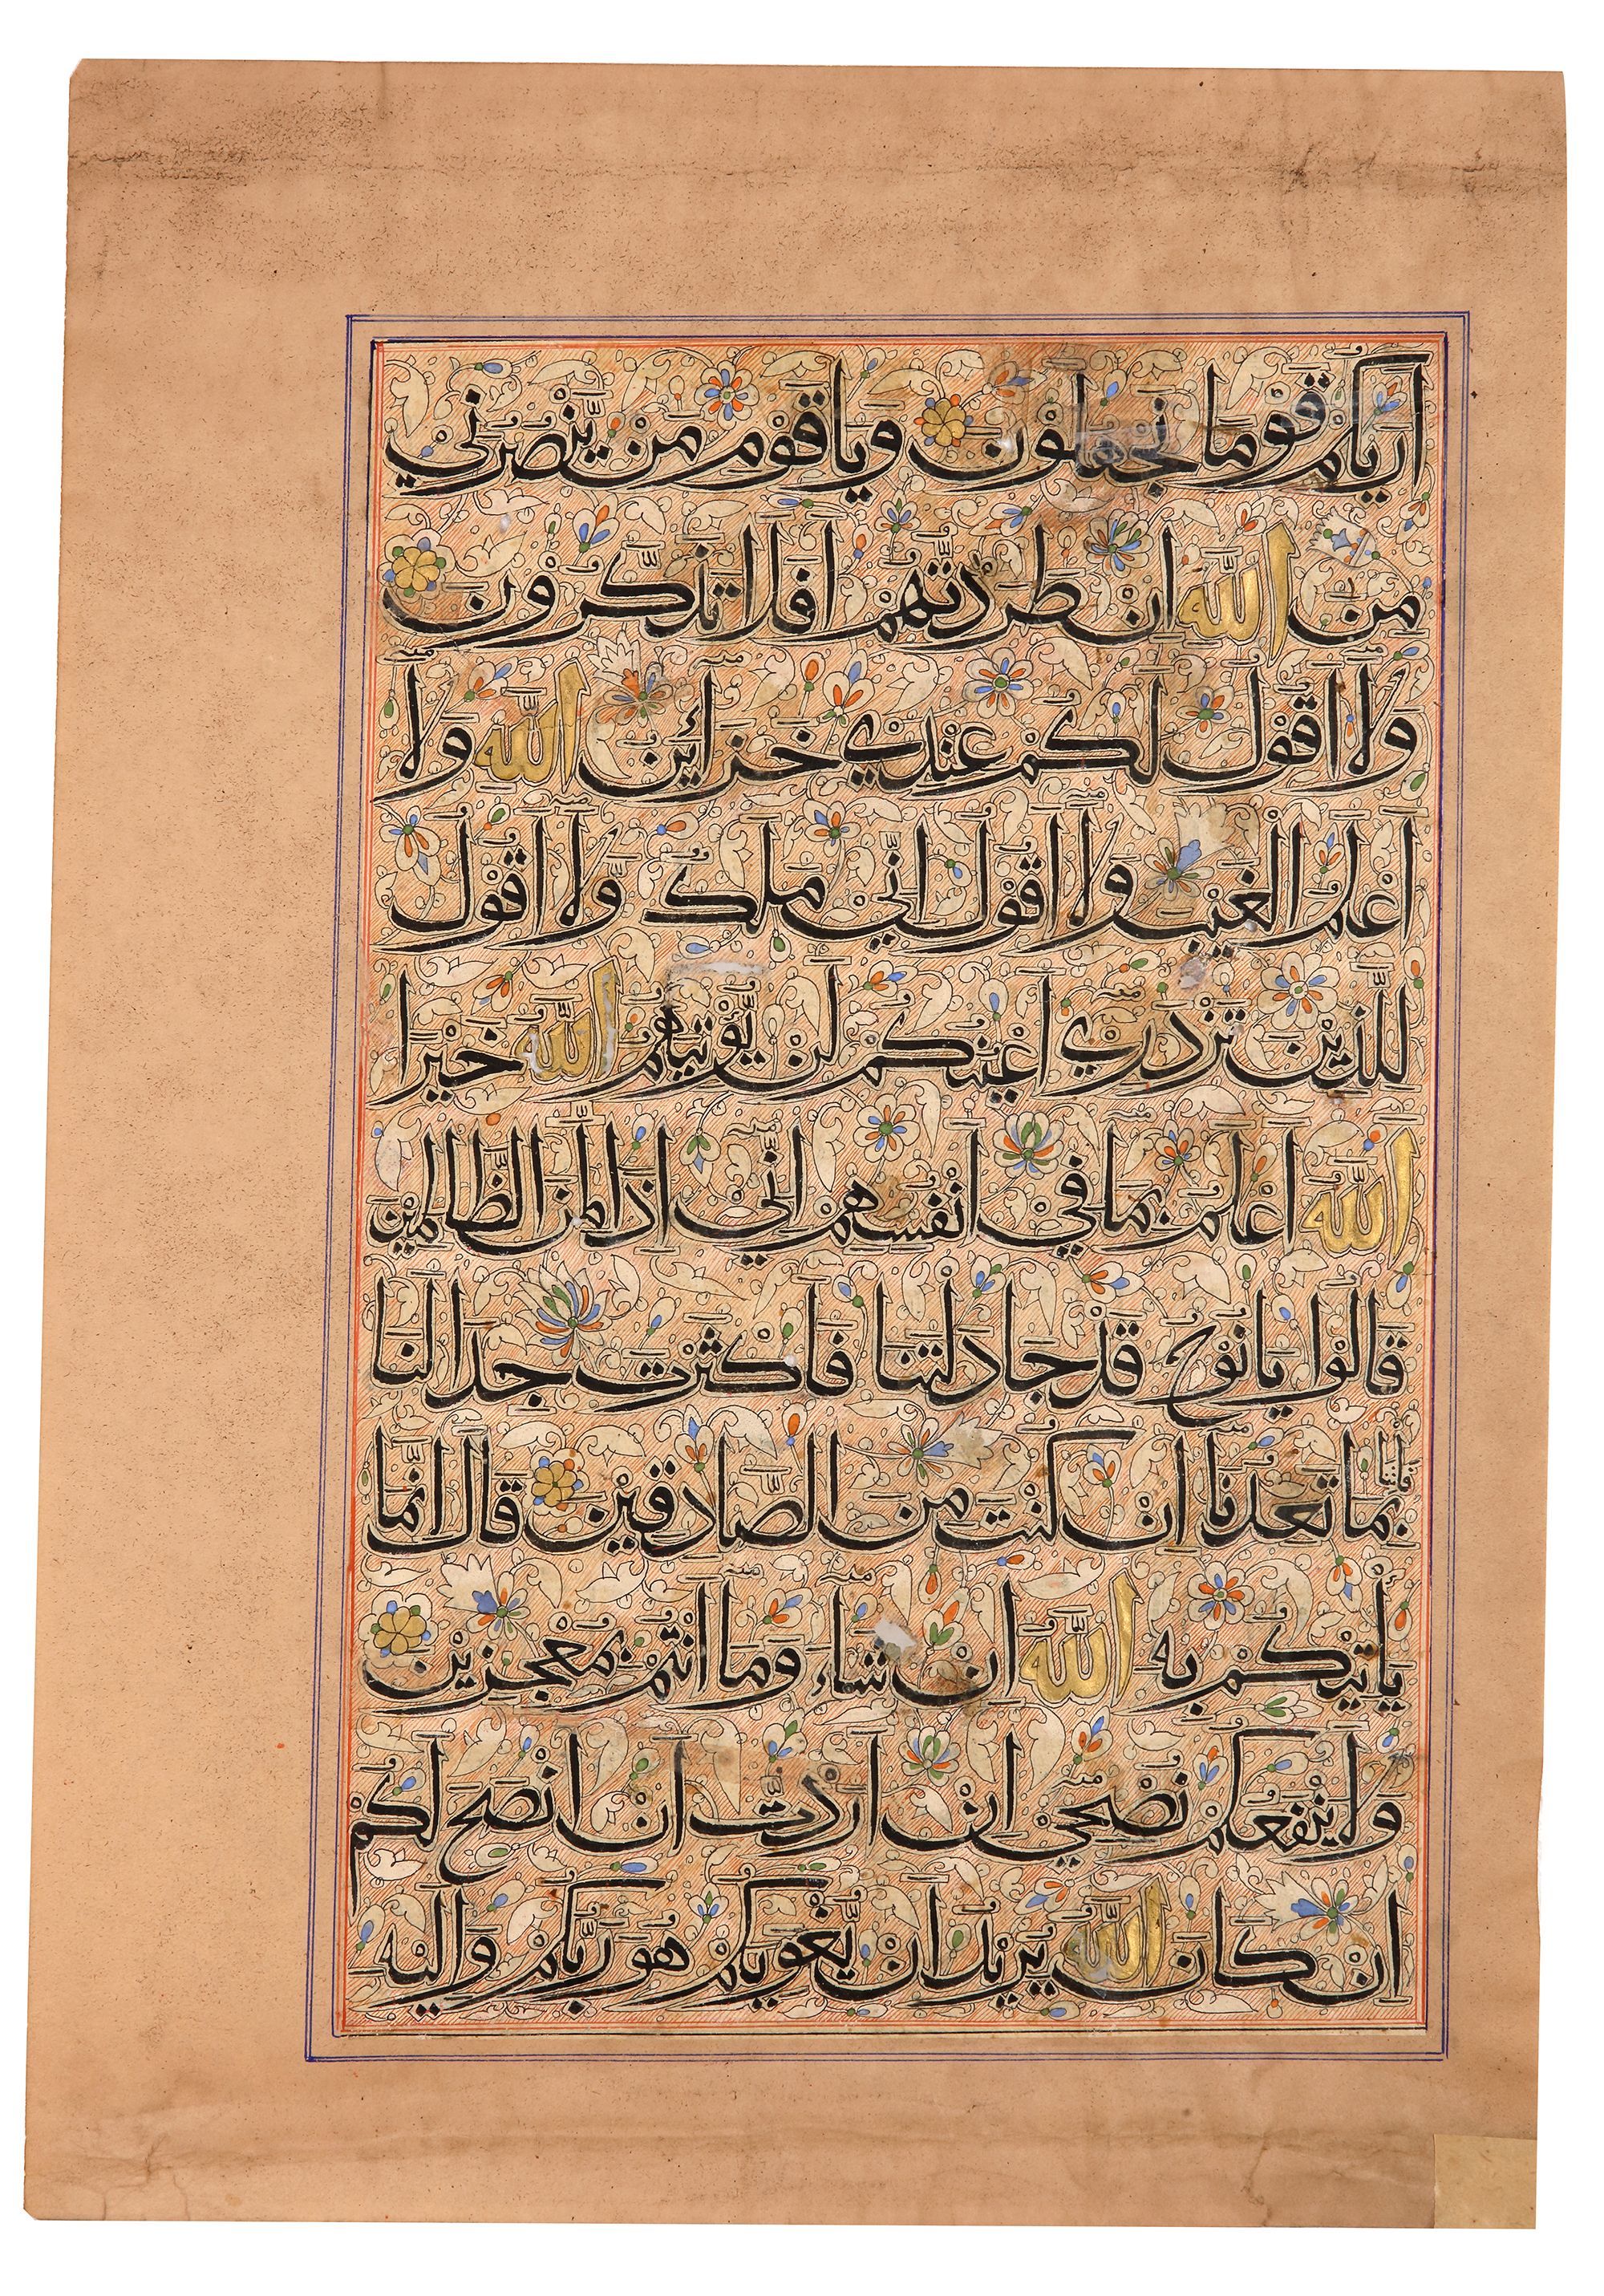 اَرٰيكُمْ قَوْمًا تَجْهَلُوْنَ وَيَاقَوْمِ مَنْ يَنْصُرُنِي
مِنَ اللّٰهِ اِنْ طَرَدْتُهُمْ اَفَلَا تَذَكَّرُوْنَ
وَلَا اَقُوْلُ لَكُمْ عِنْدِي خَزَائِنُ اللّٰهِ وَلَا
اَعْلَمُ الْغَيْبَ وَلَا اَقُوْلُ اِنِّي مَلَكٌ وَّلَا اَقُوْلُ
لِلَّذِيْنَ تَزْدَرِي اَعْيُنُكُمْ لَنْ يُؤْتِيَهُمُ اللّٰهُ خَيْرًا
اللّٰهُ اَعْلَمُ بِمَا فِي اَنْفُسِهِمْ اِنِّي اِذًا لَمِنَ الظَّالِمِيْنَ
قَالُوْا يَانُوْحُ قَدْ جَادَلْتَنَا فَاَكْثَرْتَ جِدَالَنَا
فَأْتِنَا بِمَا تَعِدُنَا اِنْ كُنْتَ مِنَ الصَّادِقِيْنَ قَالَ اِنَّمَا
يَاْتِيْكُمْ بِهِ اللّٰهُ اِنْ شَاءَ وَمَا اَنْتُمْ بِمُعْجِزِيْنَ
وَلَا يَنْفَعُكُمْ نُصْحِي اِنْ اَرَدْتُ اَنْ اَنْصَحَ لَكُمْ
اِنْ كَانَ اللّٰهُ يُرِيْدُ اَنْ يُغْوِيَكُمْ هُوَ رَبُّكُمْ وَاِلَيْهِ